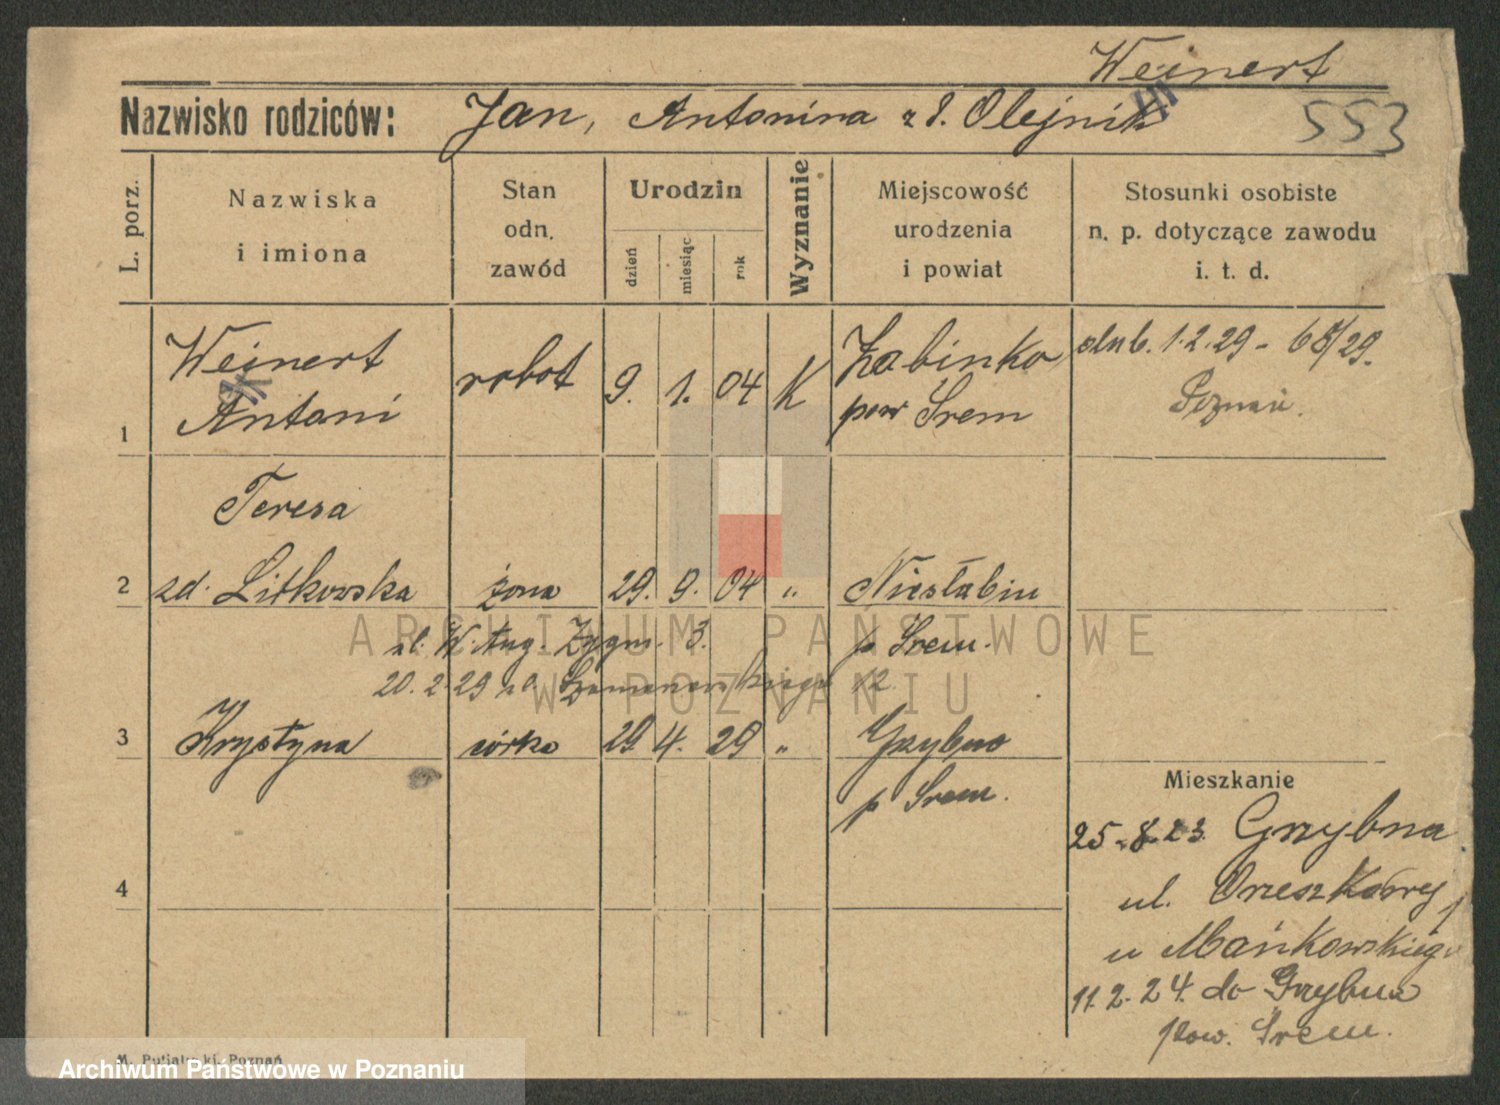 Weinert
Nazwisko rodziców: Jan, Antonina z d. Olejnik
553
L. porz.
Nazwiska
i imiona
Stan
odn.
zawód
Urodzin
dzień
miesiąc
rok
Wyznanie
Miejscowość
urodzenia
i powiat
Stosunki osobiste
n. p. dotyczące zawodu
i. t. d.
1
Weinert
Antoni
robot
9. 1. 04
K
Żabinko
pow Śrem
ślub. 1.2.29 -
Poznań.
2
Teresa
zd. Litkowska
żona
29. 9. 04
"
Niesłabin
p Śrem.
ul. W. Aug. 3.
20. 2. 29 12
3
Krystyna
córka
29 4. 29
"
Grzybno
p Śrem.
4
Mieszkanie
25-8-23. Grzybna
ul. Orzeszkowej
u Mańkowskiego
11.2.24. do Grzybna
pow. Śrem.
M. Putiatycki, Poznań
ARCHIWUM PAŃSTWOWE
W POZNANIU
Archiwum Państwowe w Poznaniu